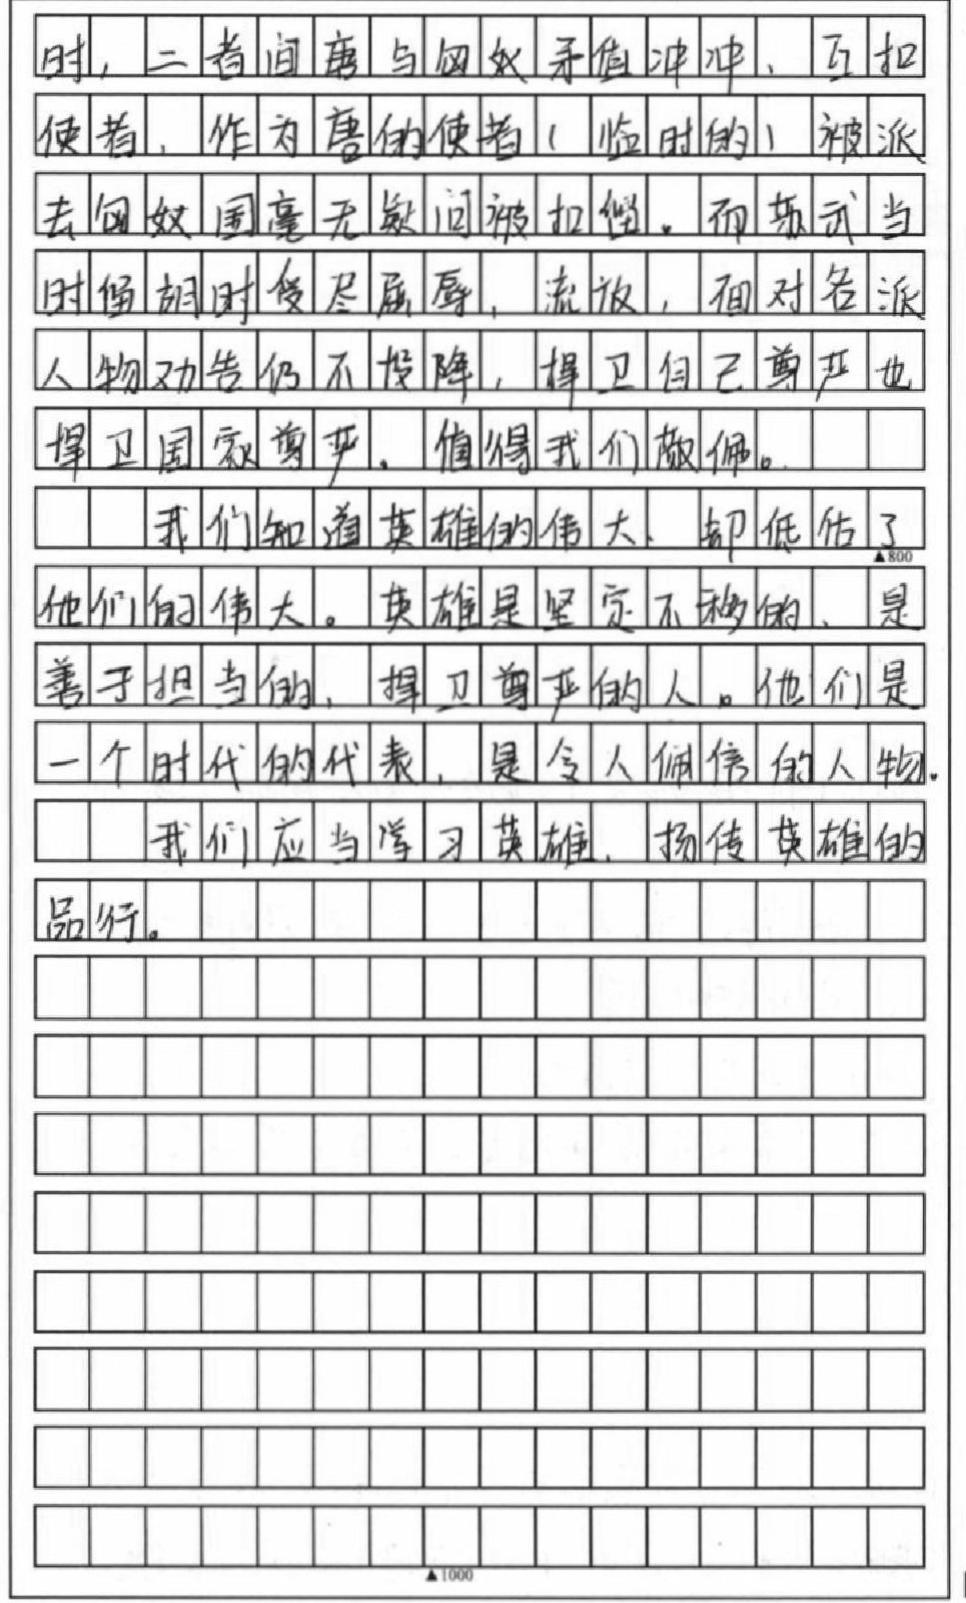 时，二者间唐与匈奴矛值冲冲、互扣
使者，作为唐的使者（临时的）被派
去匈奴国毫无疑问被扣留。而苏武当
时留胡时受尽屈辱，流放，面对各派
人物劝告仍不投降，捍卫自己尊严也
捍卫国家尊严。值得我们敬佩。
我们知道英雄的伟大、却低估了
▲800
他们的伟大。英雄是坚定不移的、是
善于担当的，捍卫尊严的人。他们是
一个时代的代表，是令人佩信的人物。
我们应当学习英雄、扬传英雄的
品行。
▲1000